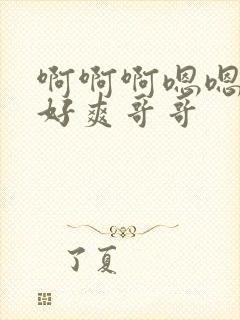 啊啊啊嗯嗯
好爽哥哥
了夏